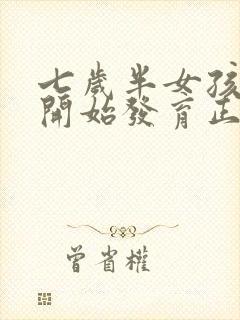 七歲半女孩
開始發育正
曾省權